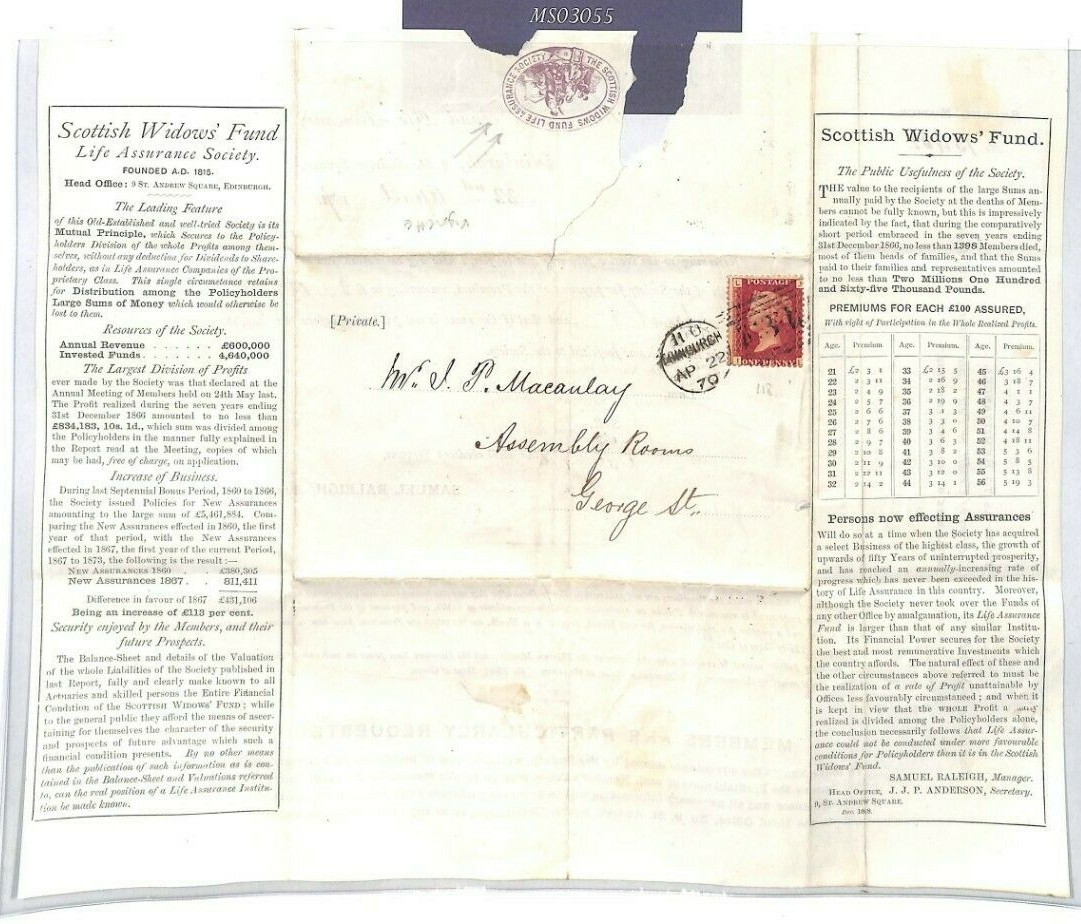 MS03055
THE SCOTTISH WIDOWS FUND LIFE ASSURANCE SOCIETY
Scottish Widows' Fund
Life Assurance Society.
FOUNDED A.D. 1815.
Head Office: 9 St. Andrew Square, Edinburgh.
The Leading Feature
of this Old-Established and well-tried Society is its
Mutual Principle, which Secures to the Policy-
holders Division of the whole Profits among them-
selves, without any deduction for Dividends to Share-
holders, as in Life Assurance Companies of the Pro-
prietary Class. This single circumstance retains
for Distribution among the Policyholders
Large Sums of Money which would otherwise be
lost to them.
Resources of the Society.
Annual Revenue . . . . . . £600,000
Invested Funds . . . . . . 4,640,000
The Largest Division of Profits
ever made by the Society was that declared at the
Annual Meeting of Members held on 24th May last.
The Profit realized during the seven years ending
31st December 1866 amounted to no less than
£834,183, 10s. 1d., which sum was divided among
the Policyholders in the manner fully explained in
the Report read at the Meeting, copies of which
may be had, free of charge, on application.
Increase of Business.
During last Septennial Bonus Period, 1860 to 1866,
the Society issued Policies for New Assurances
amounting to the large sum of £5,461,884. Com-
paring the New Assurances effected in 1860, the first
year of that period, with the New Assurances
effected in 1867, the first year of the current Period,
1867 to 1873, the following is the result:—
New Assurances 1860 . . £380,305
New Assurances 1867 . . 811,411
Difference in favour of 1867 £431,106
Being an increase of £113 per cent.
Security enjoyed by the Members, and their
future Prospects.
The Balance-Sheet and details of the Valuation
of the whole Liabilities of the Society published in
last Report, fully and clearly make known to all
Actuaries and skilled persons the Entire Financial
Condition of the Scottish Widows' Fund; while
to the general public they afford the means of ascer-
taining for themselves the character of the security
and prospects of future advantage which such a
financial condition presents. By no other means
than the publication of such information as is con-
tained in the Balance-Sheet and Valuations referred
to, can the real position of a Life Assurance Institu-
tion be made known.
[Private.]
POSTAGE
ONE PENNY
EDINBURGH
AP 22
70
Mr. J. P. Macaulay
Assembly Rooms
George St.
SAMUEL RALEIGH
MEMBERS ARE PARTICULARLY REQUESTE
Scottish Widows' Fund.
The Public Usefulness of the Society.
THE value to the recipients of the large Sums an-
nually paid by the Society at the deaths of Mem-
bers cannot be fully known, but this is impressively
indicated by the fact, that during the comparatively
short period embraced in the seven years ending
31st December 1866, no less than 1398 Members died,
most of them heads of families, and that the Sums
paid to their families and representatives amounted
to no less than Two Millions One Hundred
and Sixty-five Thousand Pounds.
PREMIUMS FOR EACH £100 ASSURED,
With right of Participation in the Whole Realized Profits.
Age. Premium. Age. Premium. Age. Premium.
21 £2 3 1 33 £2 15 5 45 £3 16 4
22 2 3 11 34 2 16 9 46 3 18 7
23 2 4 9 35 2 18 2 47 4 1 1
24 2 5 7 36 2 19 9 48 4 3 7
25 2 6 6 37 3 1 3 49 4 6 11
26 2 7 6 38 3 3 0 50 4 10 7
27 2 8 6 39 3 4 6 51 4 14 8
28 2 9 7 40 3 6 3 52 4 18 11
29 2 10 8 41 3 8 2 53 5 3 6
30 2 11 9 42 3 10 0 54 5 8 5
31 2 12 11 43 3 12 0 55 5 13 8
32 2 14 2 44 3 14 1 56 5 19 3
Persons now effecting Assurances
Will do so at a time when the Society has acquired
a select Business of the highest class, the growth of
upwards of fifty Years of uninterrupted prosperity,
and has reached an annually-increasing rate of
progress which has never been exceeded in the his-
tory of Life Assurance in this country. Moreover,
although the Society never took over the Funds of
any other Office by amalgamation, its Life Assurance
Fund is larger than that of any similar Institu-
tion. Its Financial Power secures for the Society
the best and most remunerative Investments which
the country affords. The natural effect of these and
the other circumstances above referred to must be
the realization of a rate of Profit unattainable by
Offices less favourably circumstanced; and when it
is kept in view that the WHOLE Profit
realized is divided among the Policyholders alone,
the conclusion necessarily follows that Life Assur-
ance could not be conducted under more favourable
conditions for Policyholders than it is in the Scottish
Widows' Fund.
SAMUEL RALEIGH, Manager.
Head Office, J. J. P. ANDERSON, Secretary.
9, St. Andrew Square.
Dec. 1868.